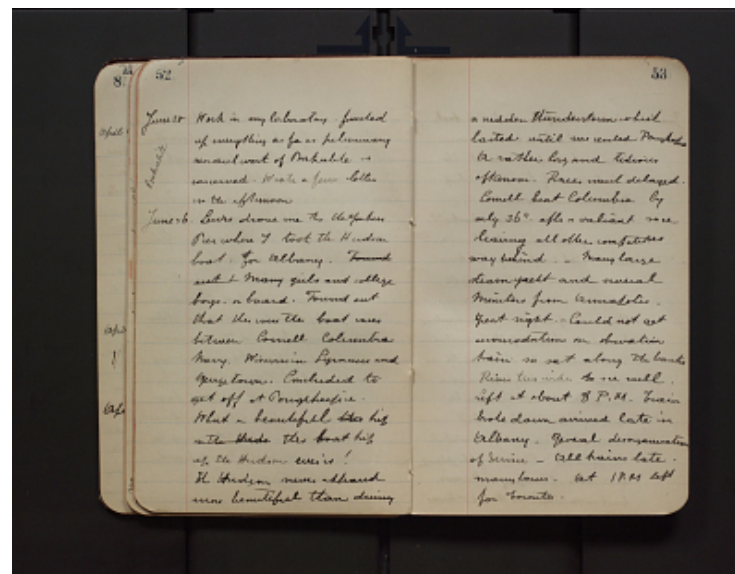 8
April
Apr
Apr
52
June 25 Work in my laboratory finished
up everything as far as preliminary
work of Bakelite is
Bakelite
concerned. Wrote a few letters
in the afternoon
June 26. drove me to the
Pier where I took the Hudson
boat for Albany. Found
out Many girls and college
boys on board. Found out
that the were the boat races
between Cornell Columbia
Navy, Wisconsin Syracuse and
Georgetown. Concluded to
get off at Poughkeepsie.
What a beautiful trip
is the this boat trip
up the Hudson
The Hudson never appeared
more beautiful than during
53
a sudden thunderstorm which
lasted until we reached
A rather long and tedious
afternoon. Races much delayed.
Cornell beat Columbia by
only after a valiant race
leaving all other competitors
way behind. Many large
steam yacht and several
from Annapolis.
Great sight. Could not get
accommodation on observation
train so sat along the banks
River
left at about 8 P.M. Train
broke down arrived late in
Albany. General disorganisation
of Service - All trains late.
many hours. At 1 P.M left
for Toronto.